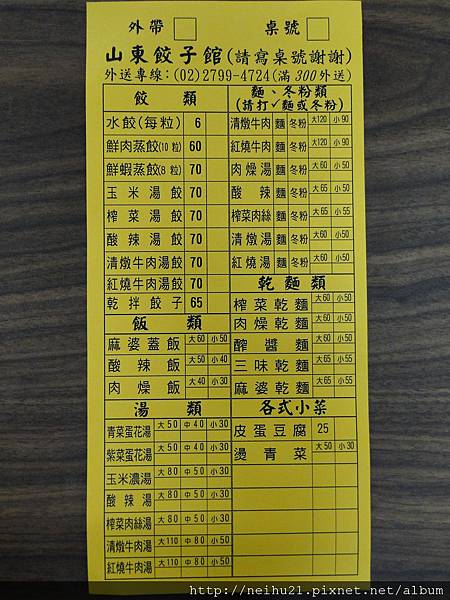 外帶 桌號
山東餃子館(請寫桌號謝謝)
外送專線:(02)2799-4724(滿300外送)
餃類
水餃(每粒) 6
鮮肉蒸餃(10粒) 60
鮮蝦蒸餃(8粒) 70
玉米湯餃 70
榨菜湯餃 70
酸辣湯餃 70
清燉牛肉湯餃 70
紅燒牛肉湯餃 70
乾拌餃子 65
飯類
麻婆蓋飯 大60 小50
酸辣飯 大50 小40
肉燥飯 大40 小30
湯類
青菜蛋花湯 大50 中40 小30
紫菜蛋花湯 大50 中40 小30
玉米濃湯 大80 中50 小30
酸辣湯 大80 中50 小30
榨菜肉絲湯 大80 中50 小30
清燉牛肉湯 大110 中80 小50
紅燒牛肉湯 大110 中80 小50
麵、冬粉類
(請打✓麵或冬粉)
清燉牛肉 麵 冬粉 大120 小90
紅燒牛肉 麵 冬粉 大120 小90
肉燥湯 麵 冬粉 大60 小50
酸辣 麵 冬粉 大65 小55
榨菜肉絲 麵 冬粉 大65 小55
清燉湯 麵 冬粉 大60 小50
紅燒湯 麵 冬粉 大60 小50
乾麵類
榨菜乾麵 大60 小50
肉燥乾麵 大60 小50
醡醬麵 大60 小50
三味乾麵 大65 小55
麻婆乾麵 大65 小55
各式小菜
皮蛋豆腐 25
燙青菜 大50 小30
http://neihu21.pixnet.net/album